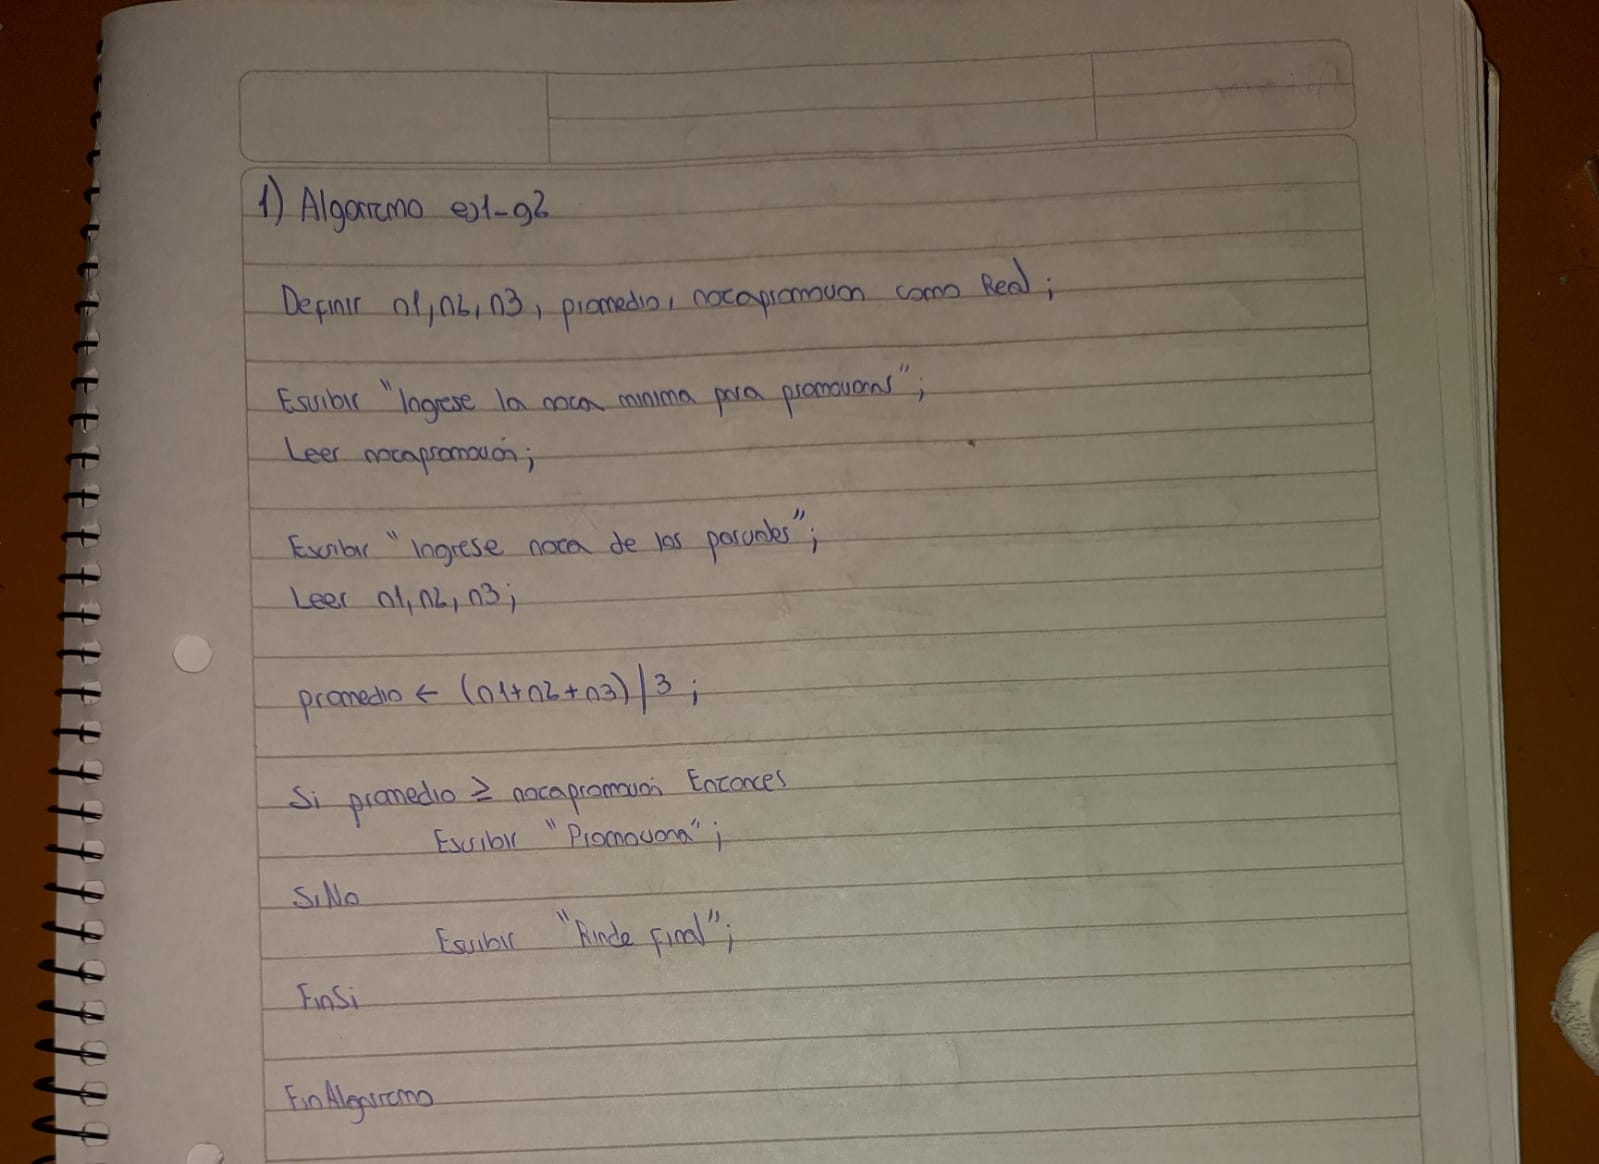 1) Algoritmo ej1-g2
Definir n1, n2, n3, promedio, notapromocion como Real;
Escribir "Ingrese la nota minima para promocionar";
Leer notapromoción;
Escribir "Ingrese nota de los parciales";
Leer n1, n2, n3;
promedio ← (n1+n2+n3)/3 ;
Si promedio ≥ notapromocion Entonces
Escribir "Promociona";
SiNo
Escribir "Rinde Final";
FinSi
FinAlgoritmo